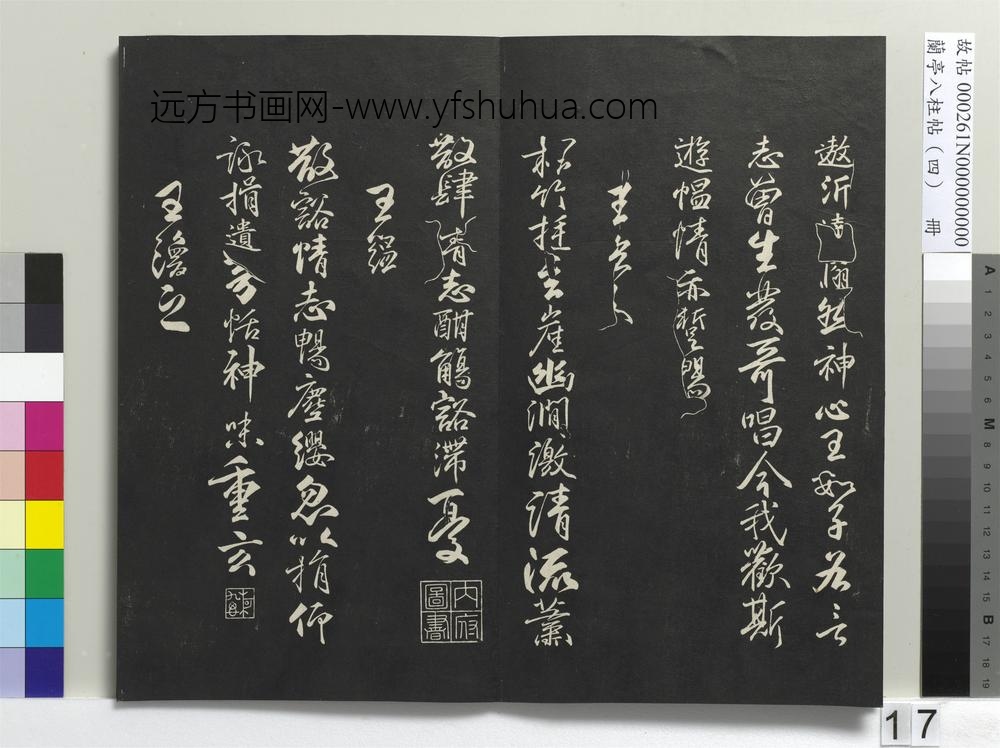 远方书画网-www.yfshuhua.com
故帖000261N000000000
蘭亭八柱帖（四） 冊
遨沂然神心王數子各言
志曾生發奇唱今我歡斯
遊慍情亦蹔暢
王玄之
松竹挺岩崖幽澗激清流蕭
散肆情志酣觴豁滯憂
內府圖書
王蘊
散豁情志暢塵纓忽以捐仰
詠挹遺芳恬神味重玄
王之
A 1 2 3 4 5 6 M 8 9 10 11 12 13 14 15 B 17 18 19
17